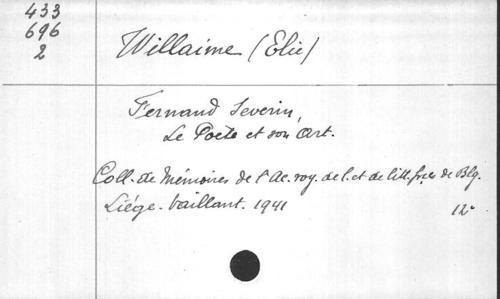 433
696
2
Willaime (Elie)
Fernand Severin,
Le Poète et son Art.
Coll. de Mémoires de l'Ac. roy. de l. et de litt. frçes de Blg.
Liége. Vaillant. 1941
12°